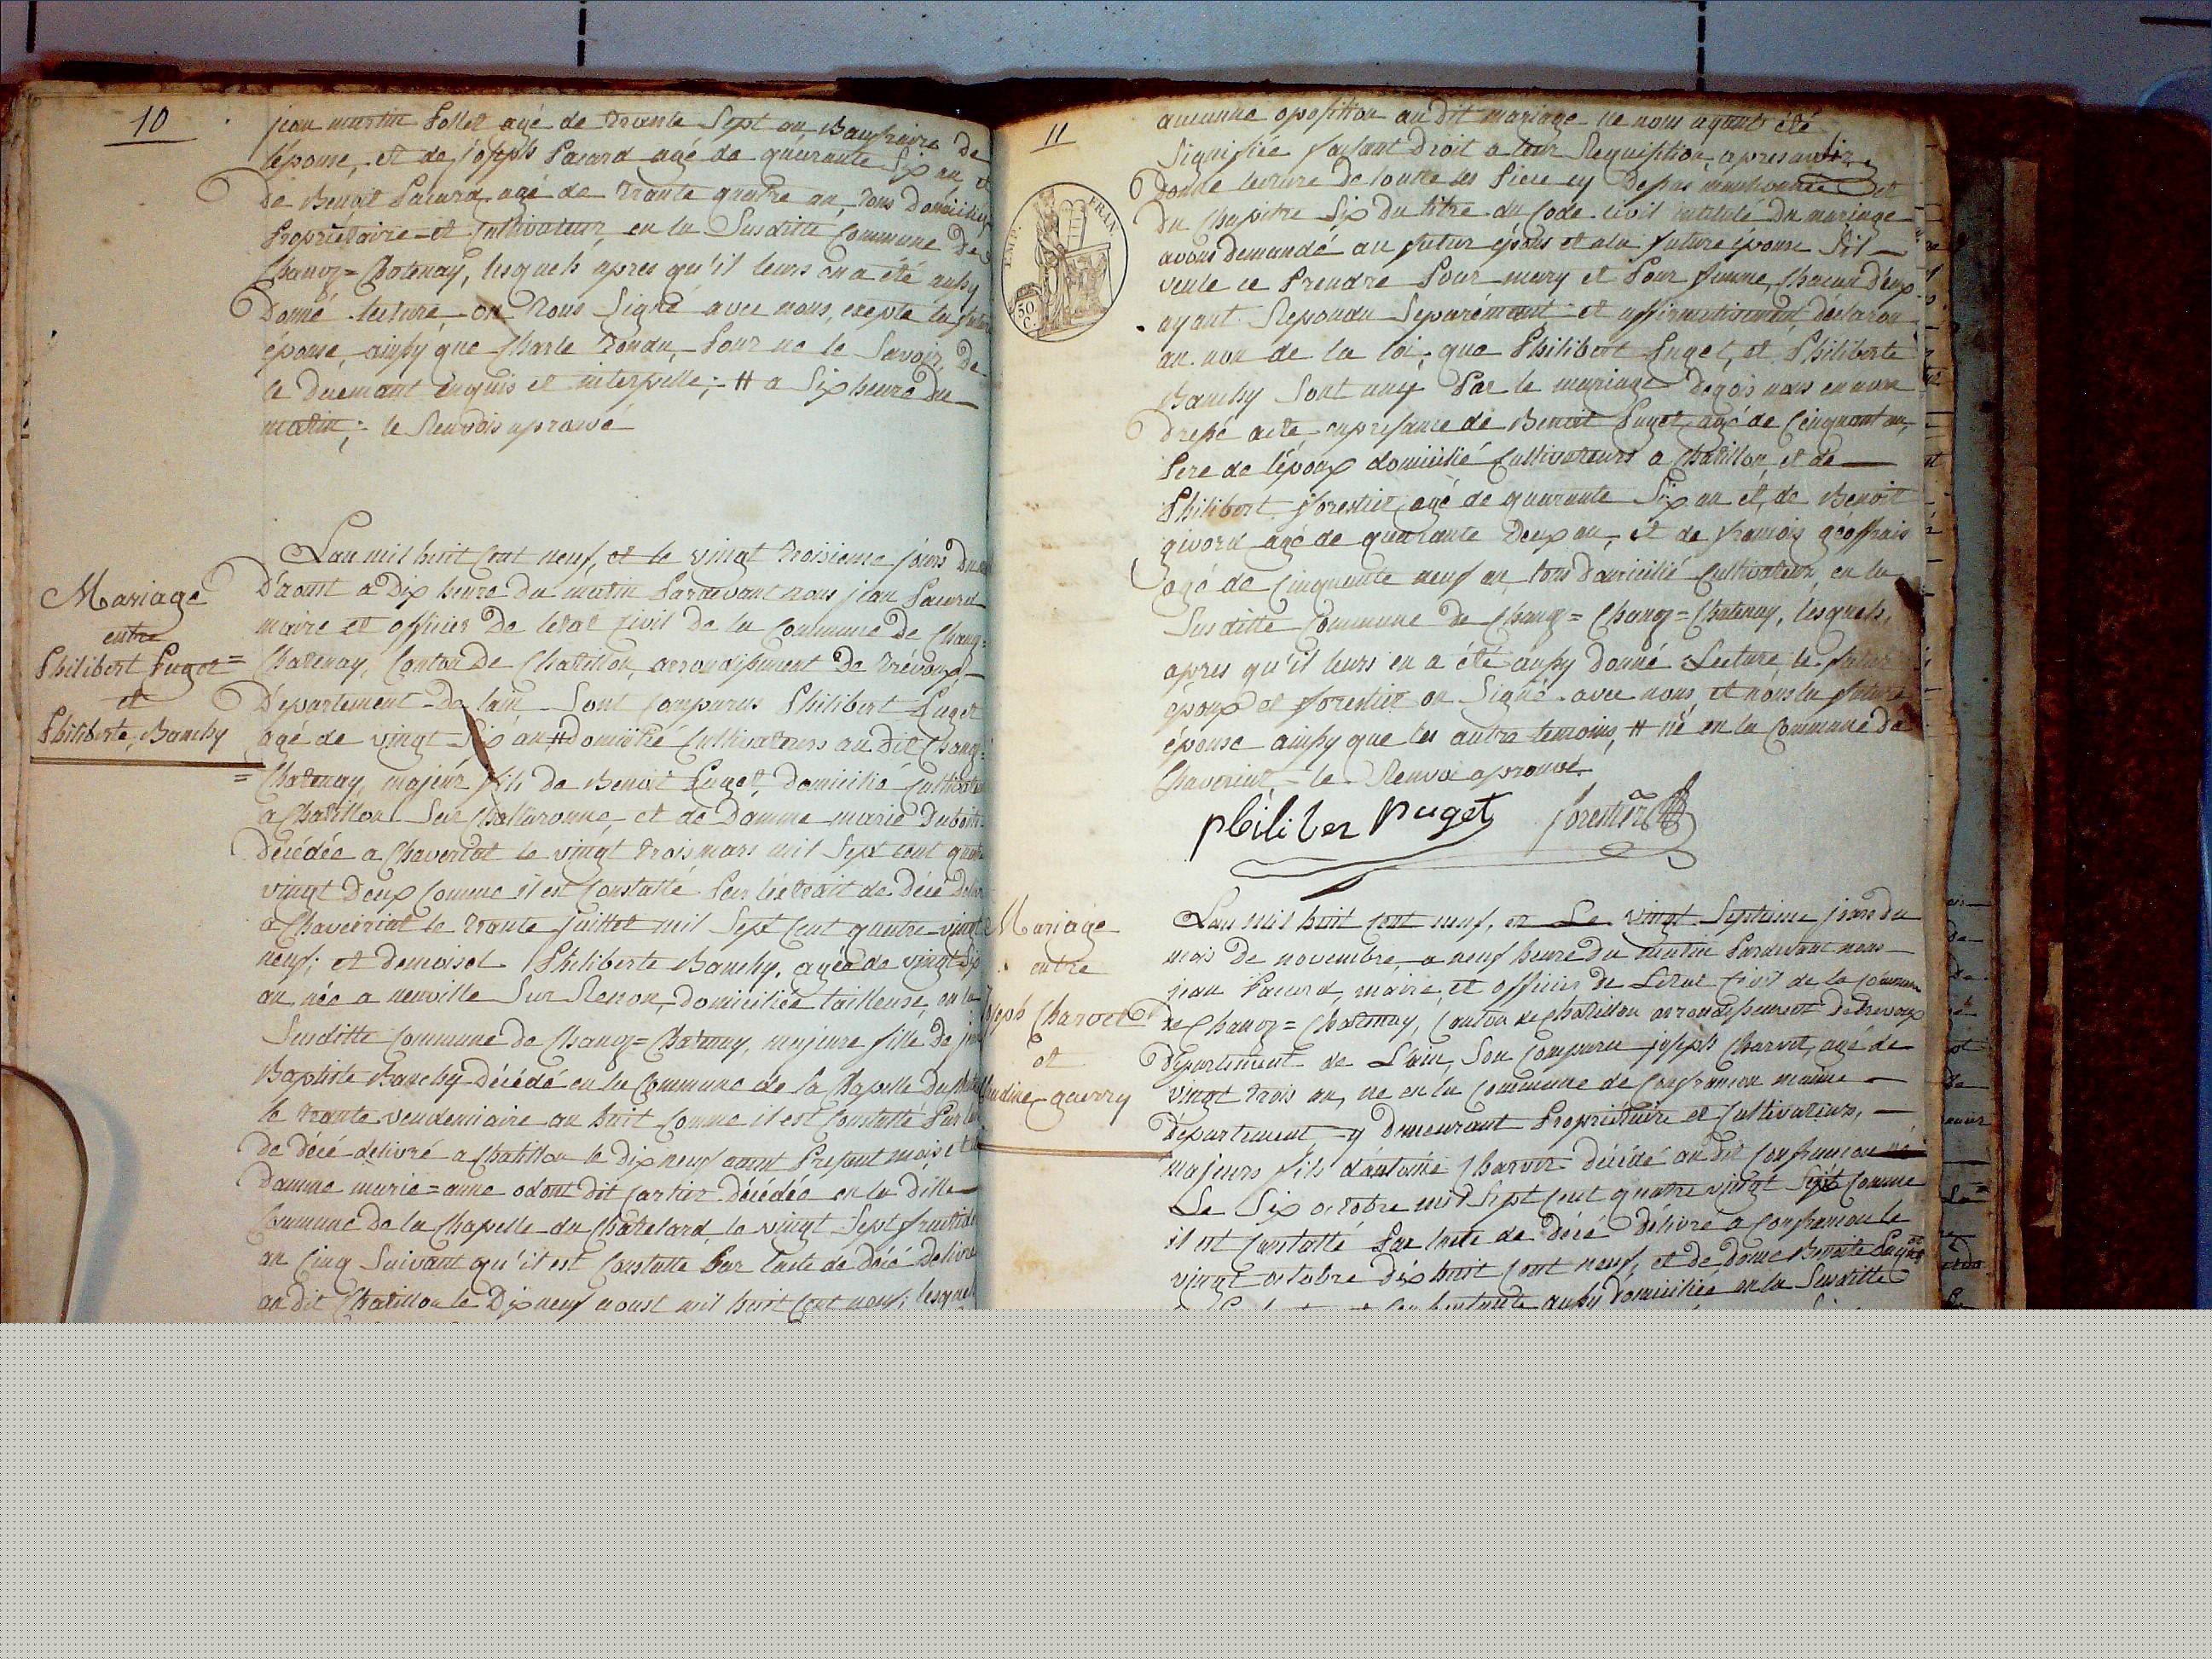 10
jean martin Pollet agé de trante Sept an, Baufraire de
lépouse, et de joseph Pacard agé de quarante Six an et
de Benoit Pacard agé de trante quatre an, tous domiciliés
Propriétaire et Cultivateur, en la Susditte Commune de
Chanoz=Chatenay, lesquels apres qu'il leurs en a été aussy
donné lecture, on tous Signé avec nous, exepté la future
épouse, ainssy que Charle Rondu, Pour ne le Savoir, de
le duemant enquis et interpellé; # a Six heure du
matin; le Renvois aprouvé
Mariage
entre
Philibert Puget=
et
Philiberte Banchy
Lan mil huit Cent neuf, et le vingt troisieme jours du
d'aoust a Dix heure du matin Pardevant nous jean Pacard
maire et officier De letat Civil de la Commune de Chanoz=
Chatenay, Canton de Chatillon, arrondissement De Trévoux,
Département de lain Sont Comparus Philibert Puget
agé de vingt Six an # domicilié Cultivateurs au dit Chanoz
=Chatenay, majeur fils de Benoit Puget domicilié Cultivateur
a Chatillon Sur Challaronne, et de Damme marie Dubois
Décédée a Chaveriat le vingt trois mars mil Sept cent quatre
vingt Deux Comme il est Constatté Par léxtrait de Décé Delivré
a Chaveiriat le trante juillet mil Sept Cent quatre vingt
neuf; et demoisel Philiberte Banchy, agée de vingt Six
an, née a neuville Sur Renon, Domiciliée tailleuse, en la
Susditte Commune de Chanoz=Chatenay, majeure fille De jean
Baptiste Banchy Décédé en la Commune de la Chapelle du Chatelard
le trante vendemiaire an huit Comme il est Constatté Par
de décé délivré a Chatillon le Dix neuf aoust Présent mois, et
Damme marie=anne odont dit Cartier Décédée en la ditte
Commune De la Chapelle du Chatelard le vingt Sept fructidor
an Cinq Suivant qu'il est Constatté Par lacte de Décé Delivré
au dit Chatillon le Dix neuf aoust mil huit Cent neuf; lesquels
11
EMP. FRAN.
50 C.
aucunne oposition au dit mariage ne nous ayant été
Signifiée faisant Droit a leur Requisition, apres avoir
Donné lecture De toutte les Piece cy Depas mentionnée et
du Chapitre Six Du titre du Code Civil intitulé Du mariage
avons Demandé au futur époux et ala future épouse Sil
veule ce Prendre Pour mary et Pour femme, Chacun D'eux
ayant Repondu Séparémant et affirmativemant, déclaron
au non de la loi, que Philibert Puget, et Philiberte
Banchy Sont uny Par le mariage Dequois nous en avon
dressé acte, enpresance de Benoit Puget, agé de Cinquant an,
Pere de lépoux domicilié Cultivateurs a Chatillon, et de
Philibert forestier, agé de quarante Six an et, de Benoit
givord agé de quarante Deux an, et de francois geoffrais
agé de Cinquante neuf an, tous domicilié Cultivateur, en la
Susditte Commune de Chanoz=Chanoz=Chatenay, lesquels,
apres qu'il leurs en a été aussy donné Lecture, le futur
époux et forestier on Signé avec nous, et nons la future
épouse ainssy que les autre temoins, # né en la Commune de
Chaveriat le Renvoi aprouvé.
philiber puget forestier
Mariage
entre
joseph Charvet
et
Claudine guerry
Lan mil huit Cent neuf, et Le vingt Septieme jour du
mois De novembre, a neuf heure du matin Pardevant nous
jean Pacard, maire, et officier de Letat Civil de la Commune
de Chanoz=Chatenay, Canton de Chatillon arrondissement de trevoux
Département de L'ain, Son Comparu joseph Charvet, agé de
vingt trois an, né en la Commune de Confrancon meme
département, y Demeurant Propriétaire et Cultivateurs,
majeurs fils d'antoine Charvet Décédé au dit Confrancon
Le Six octobre mil Sept Cent quatre vingt Sept Comme
il est Constatté Par lacte de Décé Délivré a Confrancon le
vingt octobre dix huit Cent neuf, et de Dame Benoite
aussy Domiciliée en la Susditte